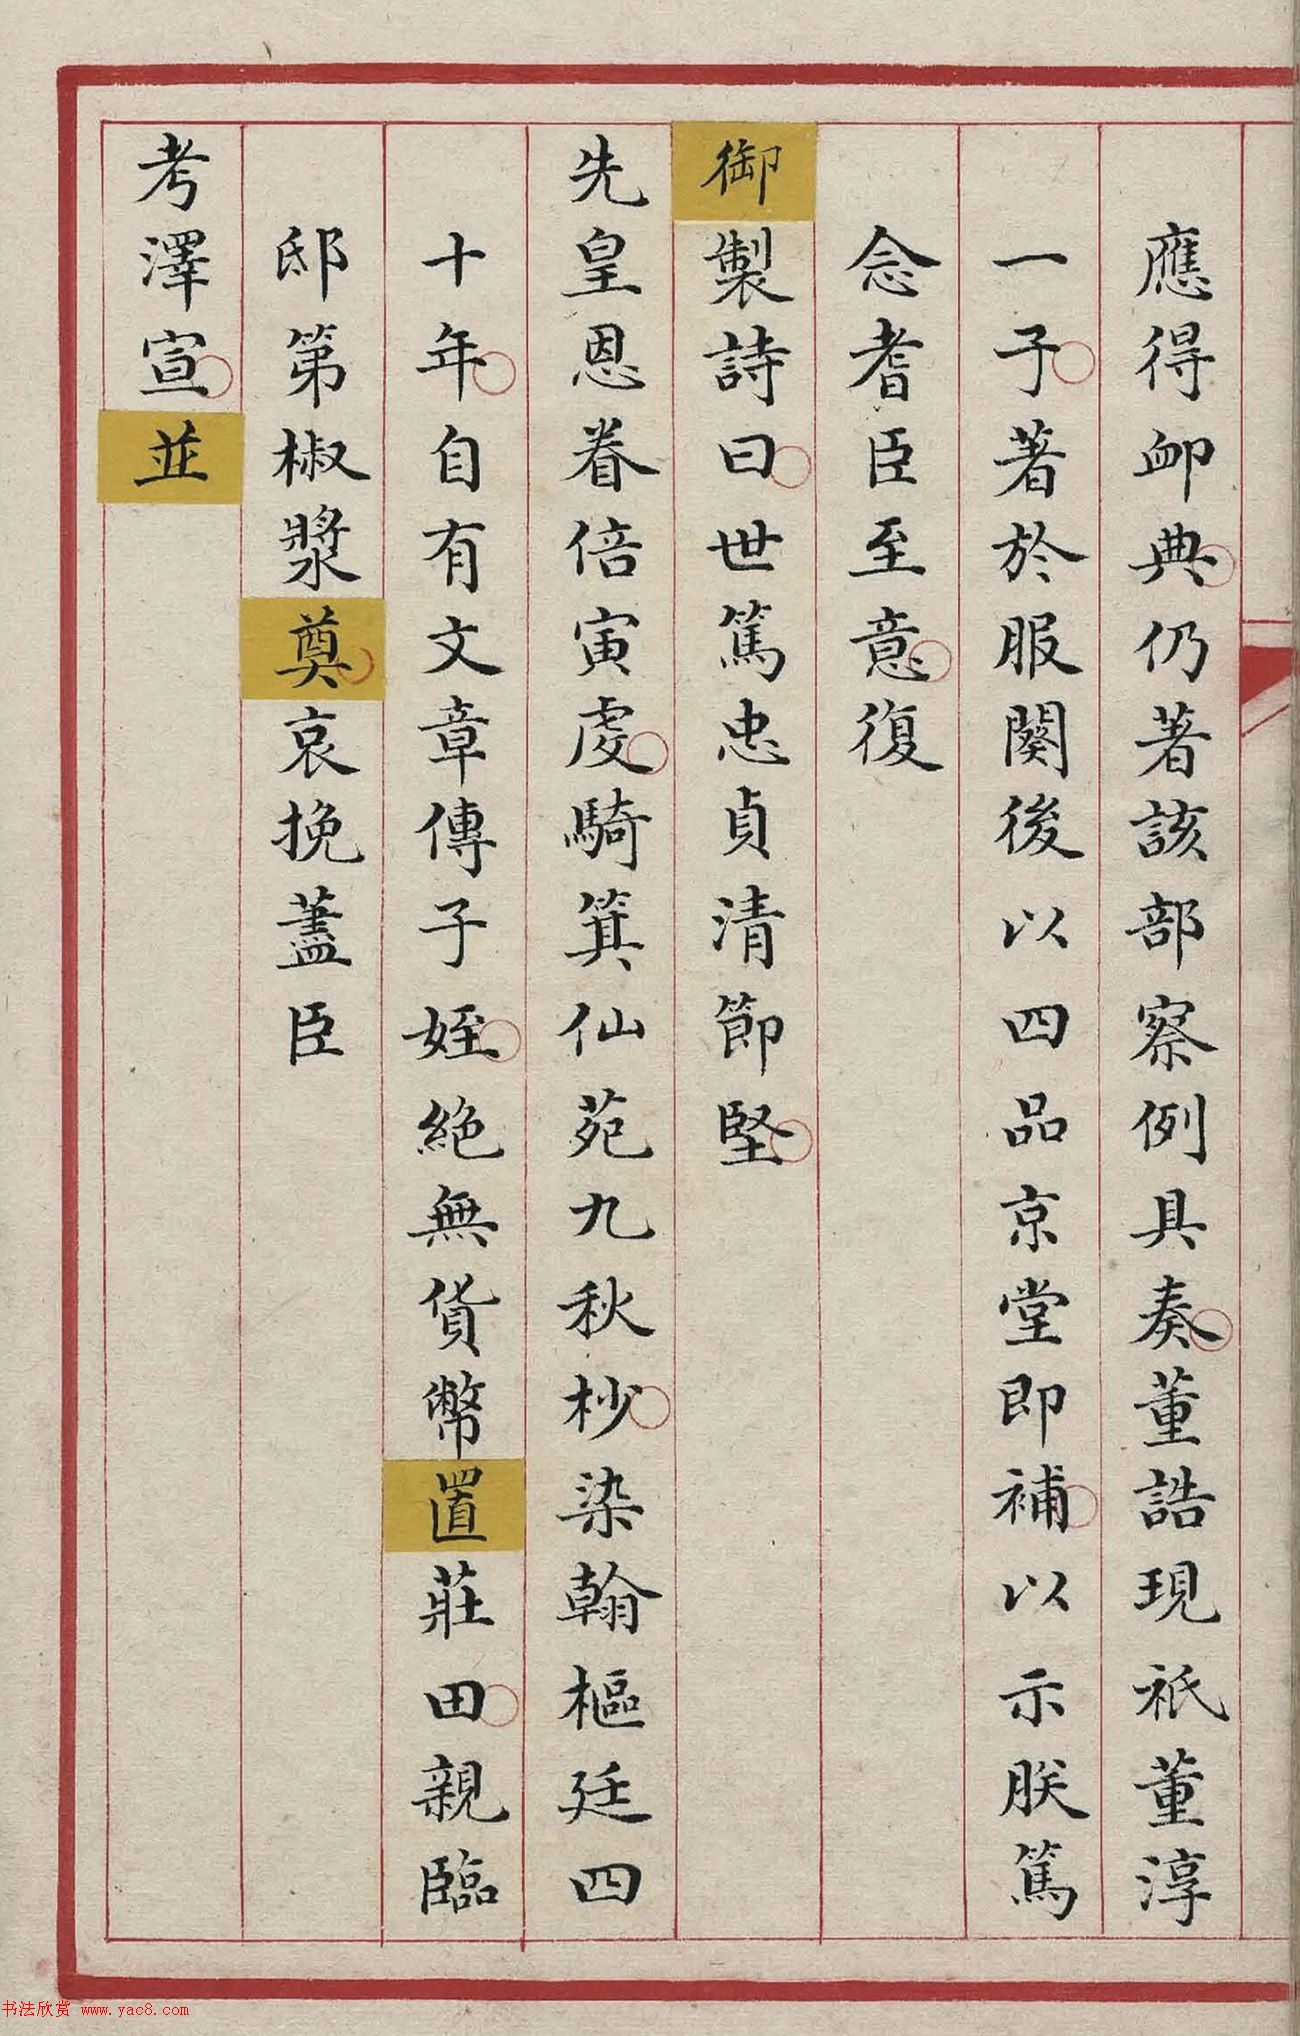 應得卹典仍著該部察例具奏董誥現祇董淳
一子著於服闋後以四品京堂即補以示朕篤
念耆臣至意復
御製詩曰世篤忠貞清節堅
先皇恩眷倍寅虔騎箕仙苑九秋杪染翰樞廷四
十年自有文章傳子姪絶無貨幣置莊田親臨
邸第椒漿奠哀挽藎臣
考澤宣並
书法欣赏 www.yac8.com